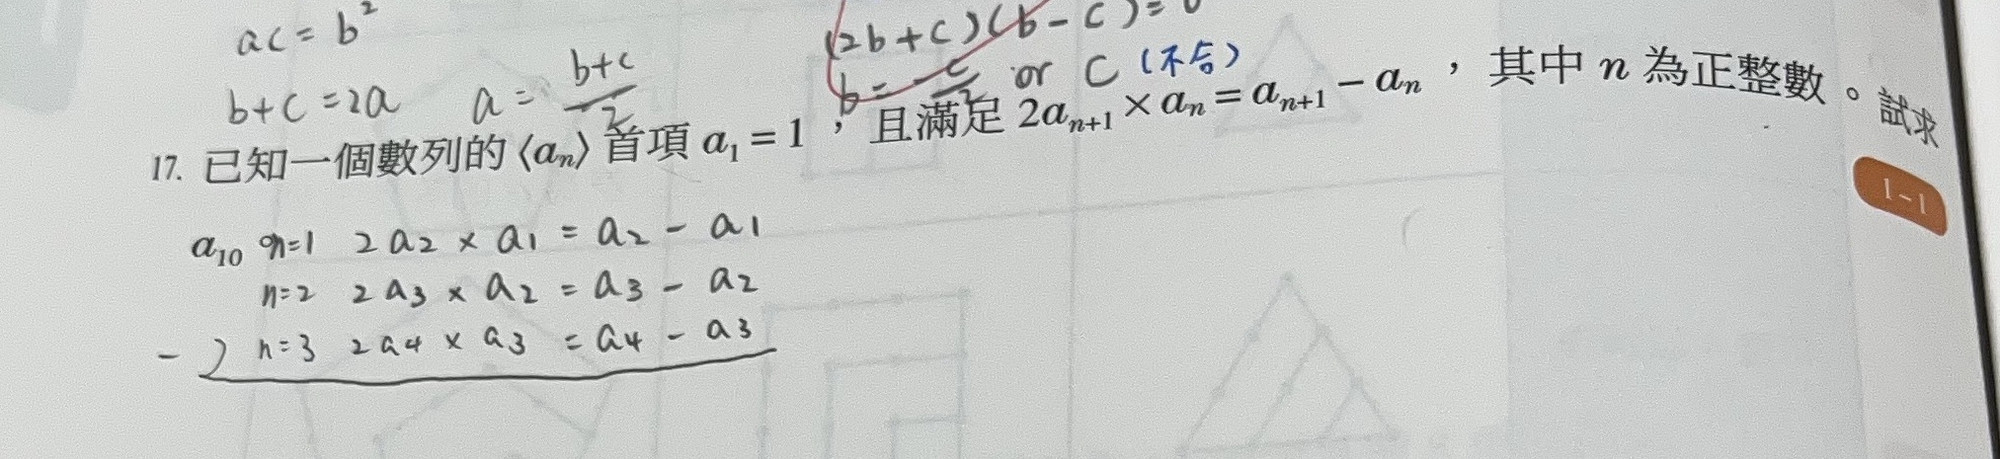 ac = b²
(2b+c)(b-c)=0
b+c=2a a=\frac{b+c}{2} b=-\frac{c}{2} or c (不合)
17. 已知一個數列的⟨aₙ⟩首項 a₁ = 1,且滿足 2aₙ₊₁ × aₙ = aₙ₊₁ − aₙ,其中 n 為正整數。試求
1-1
a₁₀ n=1 2a₂ × a₁ = a₂ − a₁
n=2 2a₃ × a₂ = a₃ − a₂
−) n=3 2a₄ × a₃ = a₄ − a₃